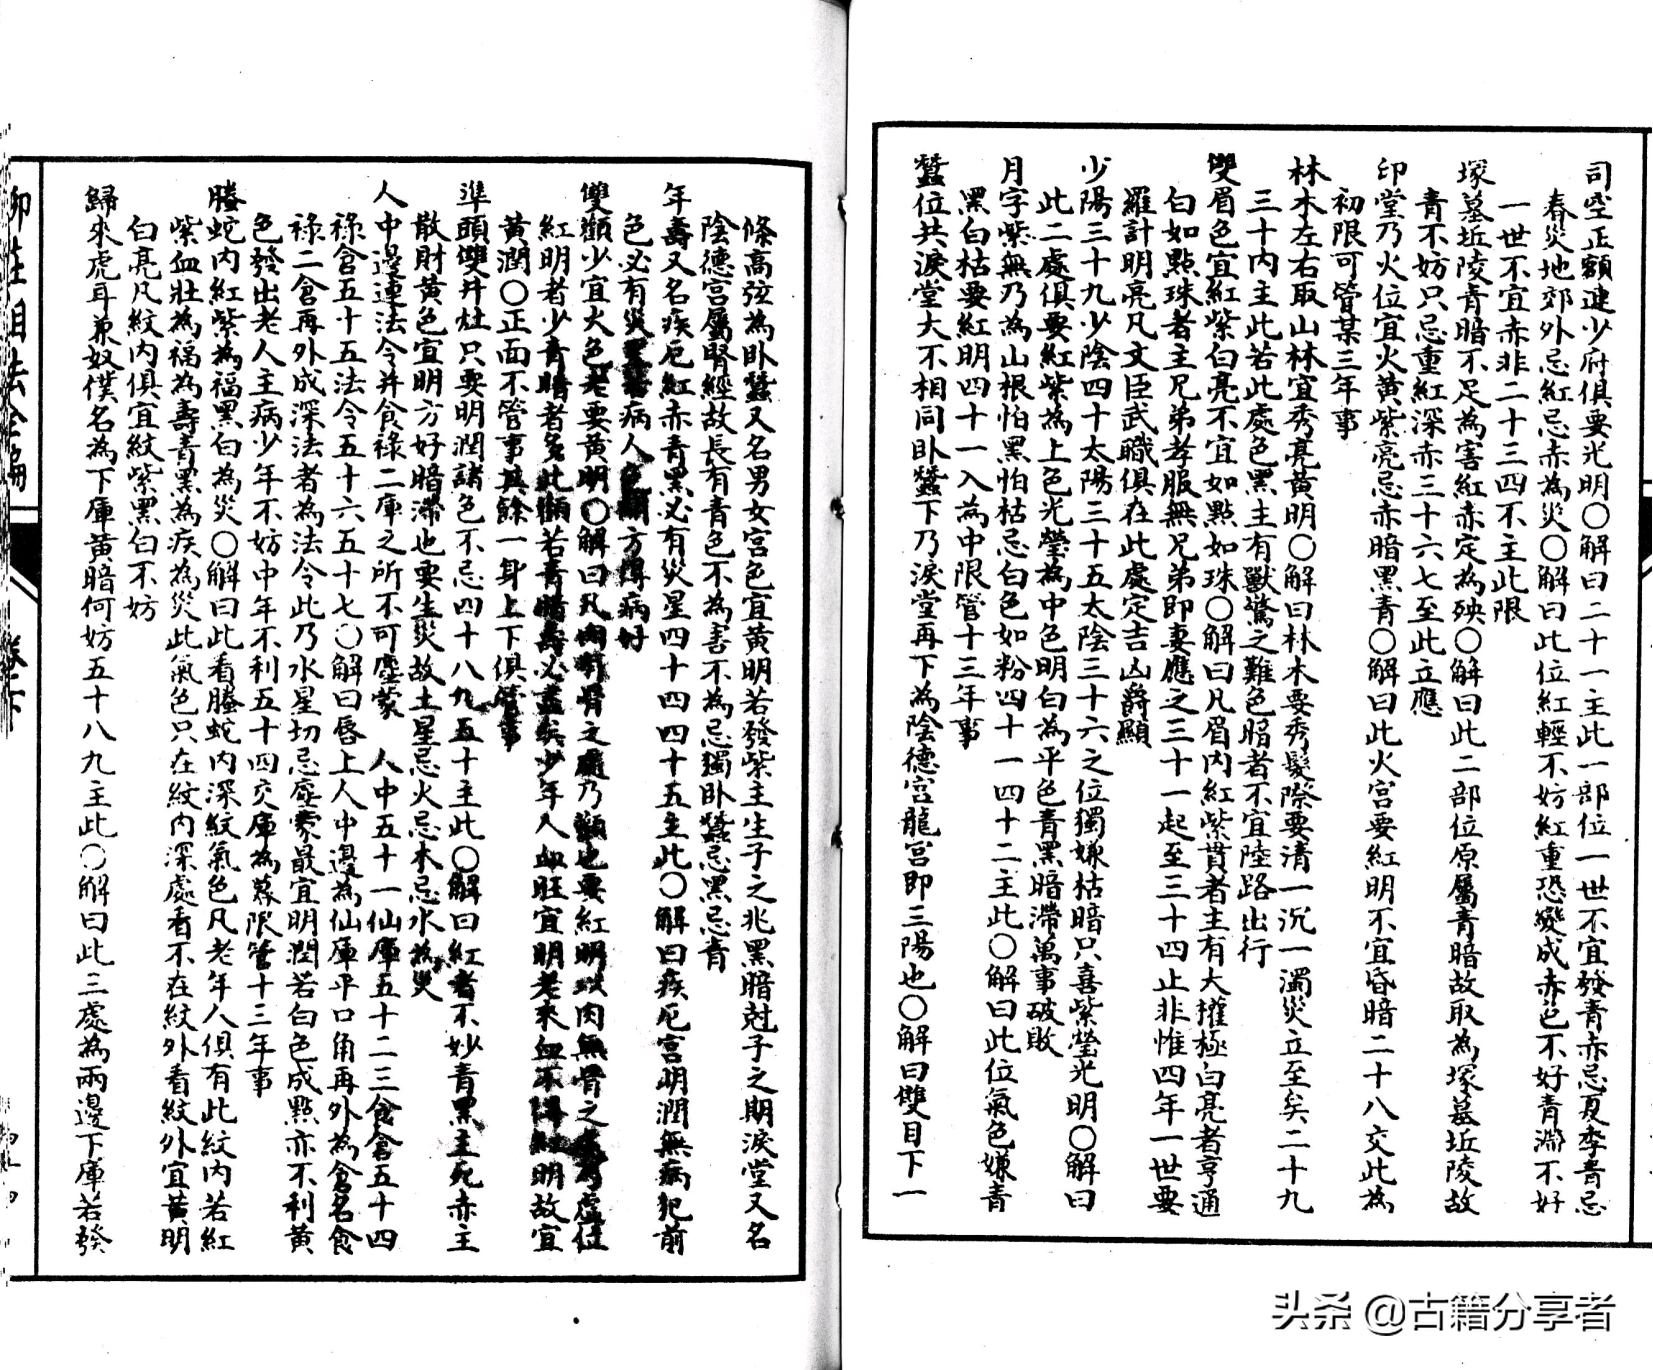 司空正額建少府俱要光明○解曰二十一主此一部位一世不宜發青赤忌夏季青忌
春災地郊外忌紅忌赤為災○解曰此位紅輕不妨紅重恐變成赤色不好青滯不好
一世不宜赤非二十三四不主此限
塚墓坵陵青暗不足為害紅赤定為殃○解曰此二部位原屬青暗故取為塚墓坵陵故
青不妨只忌重紅深赤三十六七至此立應
印堂乃火位宜火黃紫亮忌赤暗黑青○解曰此火宮要紅明不宜昏暗二十八交此為
初限可管某三年事
林木左右取山林宜秀亮黃明○解曰林木要秀髮際要清一沉一濁災立至矣二十九
三十內主此若此處色黑主有獸驚之難色暗者不宜陸路出行
雙眉色宜紅紫白亮不宜如點如珠○解曰凡眉內紅紫貫者主有大權極白亮者亨通
白如點珠者主兄弟孝服無兄弟即妻應之三十一起至三十四止非惟四年一世要
羅計明亮凡文臣武職俱在此處定吉凶爵顯
少陽三十九少陰四十太陽三十五太陰三十六之位獨嫌枯暗只喜紫瑩光明○解曰
此二處俱要紅紫為上色光瑩為中色明白為平色青黑暗滯萬事破敗
月字紫無乃為山根怕黑怕枯忌白色如粉四十一四十二主此○解曰此位氣色嫌青
黑白枯要紅明四十一入為中限管十三年事
蠶位共淚堂大不相同卧蠶下乃淚堂再下為陰德宮龍宮即三陽也○解曰雙目下一
條高弦為卧蠶又名男女宮色宜黃明若發紫主生子之兆黑暗尅子之期淚堂又名
陰德宮屬腎經故長有青色不為害不為忌獨卧蠶忌黑忌青
年壽又名疾厄紅赤青黑必有災星四十四四十五主此○解曰疾厄宮明潤無病犯前
色必有災病人色方得病好
雙顴少宜火色老要黃明○解曰凡肉附骨之處乃顴也要紅明以肉無骨之處乃虛位
紅明者少青暗者多此顴若青暗壽必盡矣少年人血旺宜明老來血不得紅明故宜
黃潤○正面不管事其餘一身上下俱管事
準頭雙井灶只要明潤諸色不忌四十八九五十主此○解曰紅者不妙青黑主死赤主
散財黃色宜明方好暗滯也要生災故土星忌火忌木忌水為災
人中邊連法令并食祿二庫之所不可塵蒙　人中五十一仙庫五十二三食倉五十四
祿倉五十五法令五十六五十七○解曰唇上人中邊為仙庫平口角再外為倉名食
祿二倉再外成深法者為法令此乃水星切忌塵蒙最宜明潤若白色成點亦不利黃
色發出老人主病少年不妨中年不利五十四交庫為墓限管十三年事
螣蛇內紅紫為福黑白為災○解曰此看螣蛇內深紋氣色凡老年人俱有此紋內若紅
紫血壯為福為壽青黑為疾為災此氣色只在紋內深處看不在紋外看紋外宜黃明
白亮凡紋內俱宜紋紫黑白不妨
歸來虎耳兼奴僕名為下庫黃暗何妨五十八九主此○解曰此三處為兩邊下庫若發
柳莊相法全編
卷下
头条 @古籍分享者